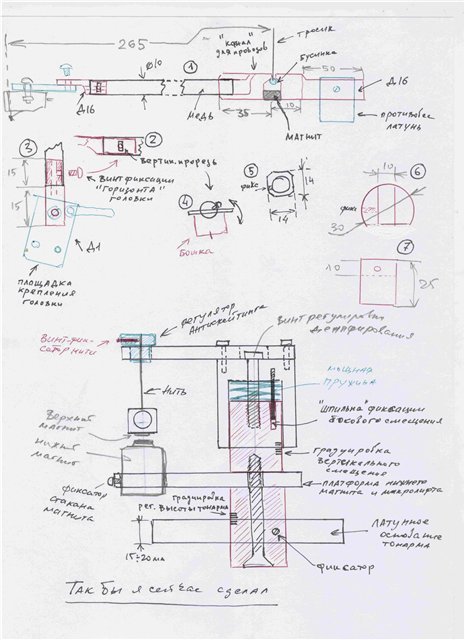 265
"канал"
для проводов
тросик
бусинка
50
Ø10
1
Д16
Д16
медь
35
10
магнит
противовес
латунь
3
2
вертик. прорезь
15
винт фиксации
"горизонта"
головки
15
Д1
площадка
крепления
головки
4
Бошка
5
фикс
14
14
6
10
фикс
30
7
10
25
регулятор
антискейтинга
винт регулировки
демпфирования
винт-фик-
сатор нити
мощная
пружина
нить
"шпилька" фиксации
бокового смещения
верхний
магнит
нижний
магнит
градуировка
вертикального
смещения
платформа нижнего
магнита и микролифта
фиксатор
стакана
магнита
градуировка
рег. высоты тонарма
латунное
основание
тонарма
15÷20мм
фиксатор
Так бы я сейчас сделал